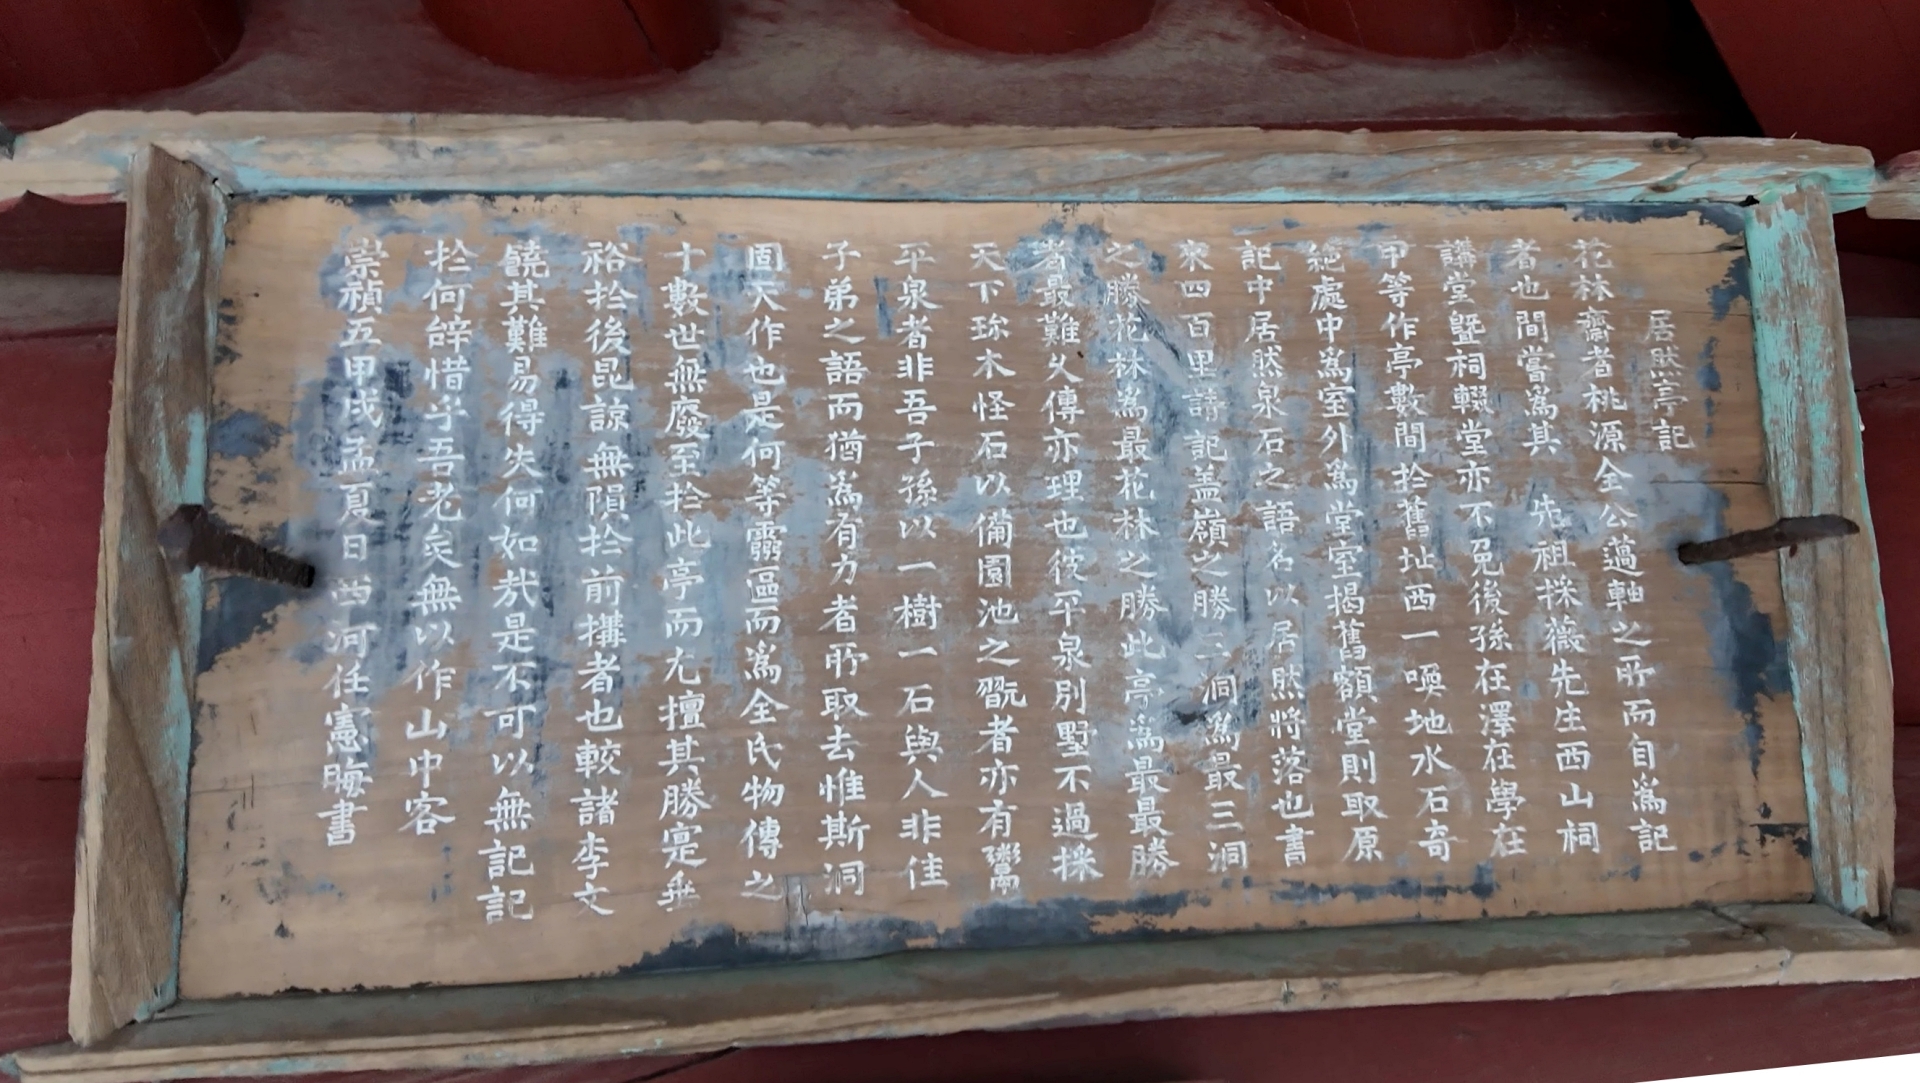 居然亭記
花林齋者桃源全公薖軸之所而自爲記
者也間嘗爲其 先祖採薇先生西山祠
講堂曁祠輟堂亦不免後孫在澤在學在
甲等作亭數間扵舊址西一喚地水石奇
絕處中爲室外爲堂室揭舊額堂則取原
記中居然泉石之語名以居然將落也書
來四百里請記盖嶺之勝三洞爲最三洞
之勝花林爲最花林之勝此亭爲最最勝
者最難久傳亦理也彼平泉別墅不過採
天下珎木怪石以備園池之翫者亦有鬻
平泉者非吾子孫以一樹一石與人非佳
子弟之語而猶爲有力者所取去惟斯洞
固天作也是何等靈區而爲全氏物傳之
十數世無廢至扵此亭而尤擅其勝寔垂
裕扵後昆諒無隕扵前搆者也較諸李文
饒其難易得失何如㢤是不可以無記記
扵何辭惜乎吾老矣無以作山中客
崇禎五甲戌孟夏日西河任憲晦書